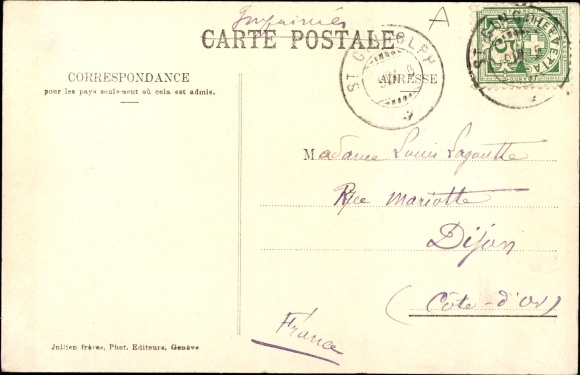 Imprimés
A
CARTE POSTALE
CORRESPONDANCE
pour les pays seulement où cela est admis.
ADRESSE
ST GINGOLPH
HELVETIA
5
Madame Louis Lagoutte
Rue Mariotte
Dijon
(Côte-d'Or)
France
Jullien frères, Phot. Editeurs, Genève